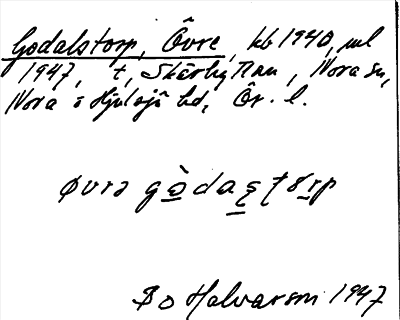 Godalstorp, Övre, kb 1940, ml
1947, t, Skärhyttan, Nora sn,
Nora o Hjulsjö bd, Ör. l.
øvrə gọ̀daʂʈørp
Bo Halvarson 1947